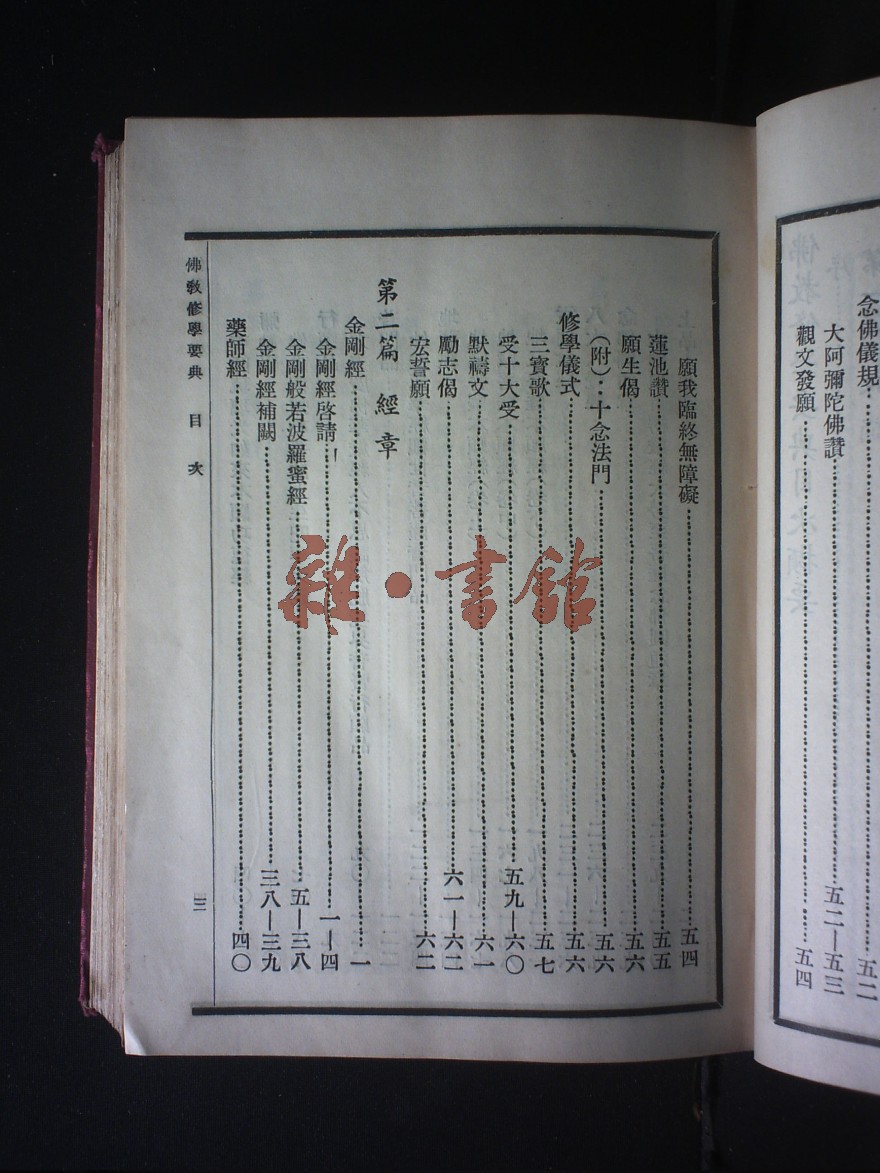 念佛儀規……五二
大阿彌陀佛讚……五二—五三
觀文發願……五四
願我臨終無障礙……五四
蓮池讚……五五
願生偈……五六
（附）：十念法門……五六
修學儀式……五六
三寶歌……五七
受十大受……五九—六〇
默禱文……六一
勵志偈……六一—六二
宏誓願……六二
第二篇 經章
金剛經……一
金剛經啓請……一—四
金剛般若波羅蜜經……五—三八
金剛經補闕……三八—三九
藥師經……四〇
佛教修學要典 目次
三
雜·書館